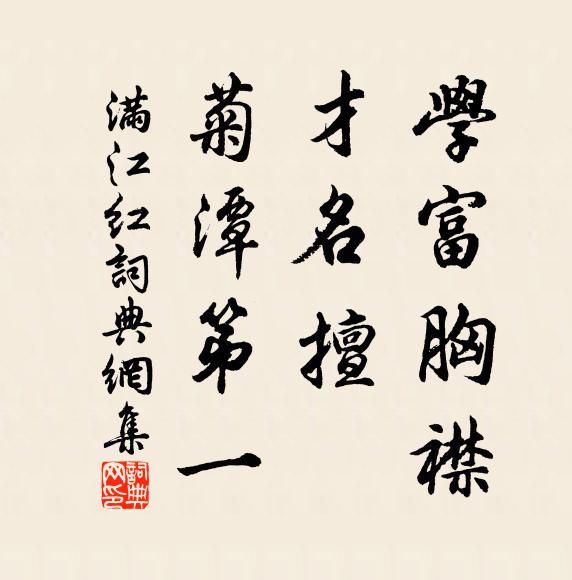 學富胸襟
才名擅
菊潭第一
滿江紅詞典網集
詞典
网印